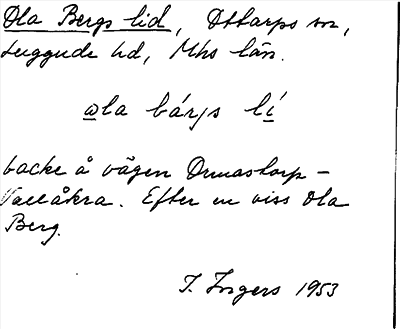 Ola Bergs lid, Ottarps sn,
Luggude hd, Mhs län.
ola bárjs lí
backe å vägen Ormastorp -
Vallåkra. Efter en viss Ola
Berg.
I. Ingers 1953